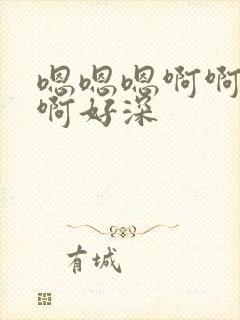 嗯嗯嗯啊啊
啊好深
有城